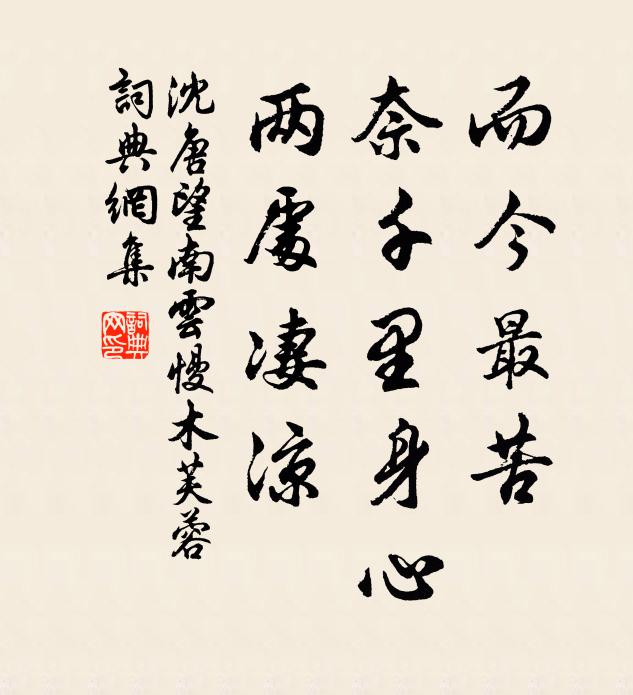 而今最苦
奈千里身心
两處凄涼
沈唐望南雲慢木芙蓉
詞典網集
詞典网印